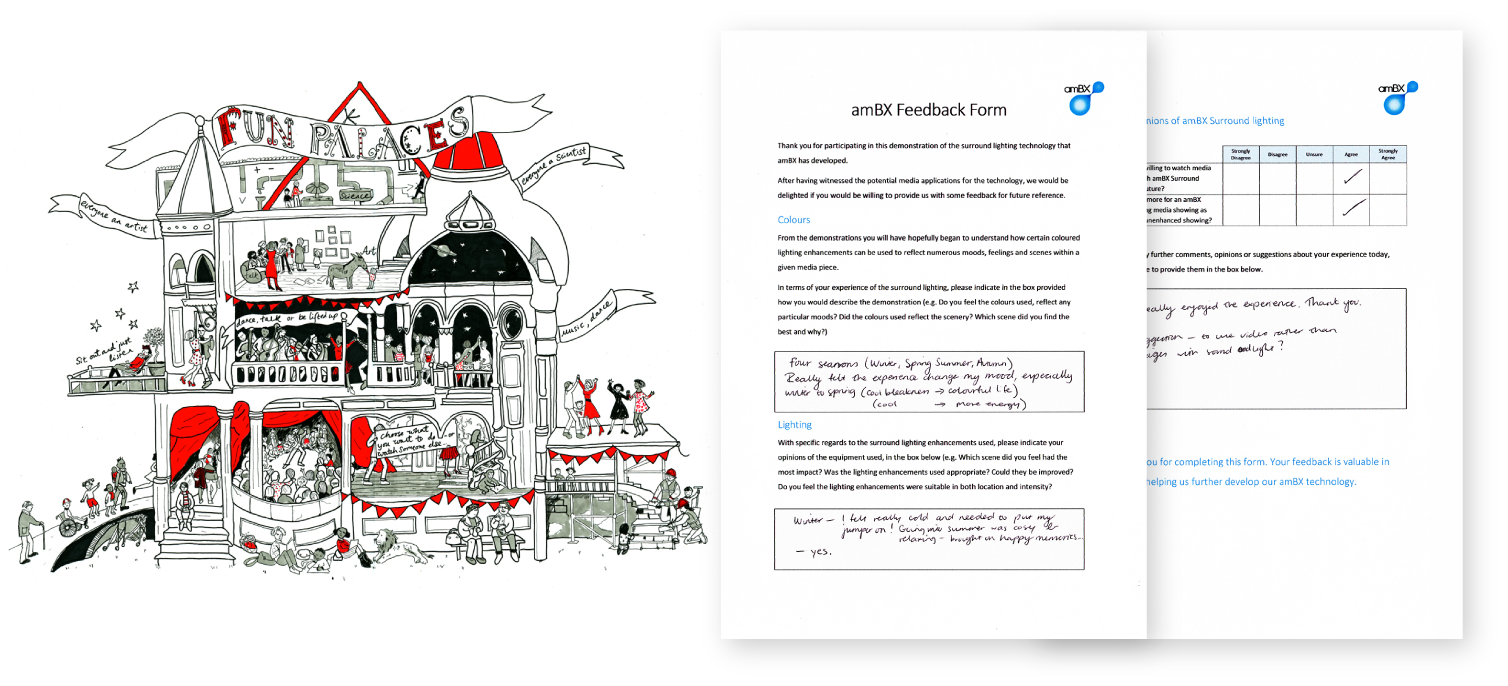 FUN PALACES
everyone a scientist
everyone an artist
Science
Art
Talk
dance, talk or be lifted up
music, dance
Sit out and just
listen
choose what
you want to do - or
watch someone else
amBX
amBX Feedback Form
Thank you for participating in this demonstration of the surround lighting technology that
amBX has developed.
After having witnessed the potential media applications for the technology, we would be
delighted if you would be willing to provide us with some feedback for future reference.
Colours
From the demonstrations you will have hopefully began to understand how certain coloured
lighting enhancements can be used to reflect numerous moods, feelings and scenes within a
given media piece.
In terms of your experience of the surround lighting, please indicate in the box provided
how you would describe the demonstration (e.g. Do you feel the colours used, reflect any
particular moods? Did the colours used reflect the scenery? Which scene did you find the
best and why?)
Four seasons (Winter, Spring, Summer, Autumn)
Really felt the experience change my mood, especially
winter to spring (cool bleakness → colourful life)
(cool → more energy)
Lighting
With specific regards to the surround lighting enhancements used, please indicate your
opinions of the equipment used, in the box below (e.g. Which scene did you feel had the
most impact? Was the lighting enhancements used appropriate? Could they be improved?
Do you feel the lighting enhancements were suitable in both location and intensity?
Winter – I felt really cold and needed to put my
jumper on! Going into summer was cosy &
relaxing – brought on happy memories...
– yes.
amBX
nions of amBX Surround lighting
Strongly Disagree Disagree Unsure Agree Strongly Agree
illing to watch media
h amBX Surround
uture?
more for an amBX
g media showing as
nenhanced showing?
y further comments, opinions or suggestions about your experience today,
e to provide them in the box below.
eally enjoyed the experience. Thank you.
ggestion – to use video rather than
ages with sound and light?
ou for completing this form. Your feedback is valuable in
helping us further develop our amBX technology.